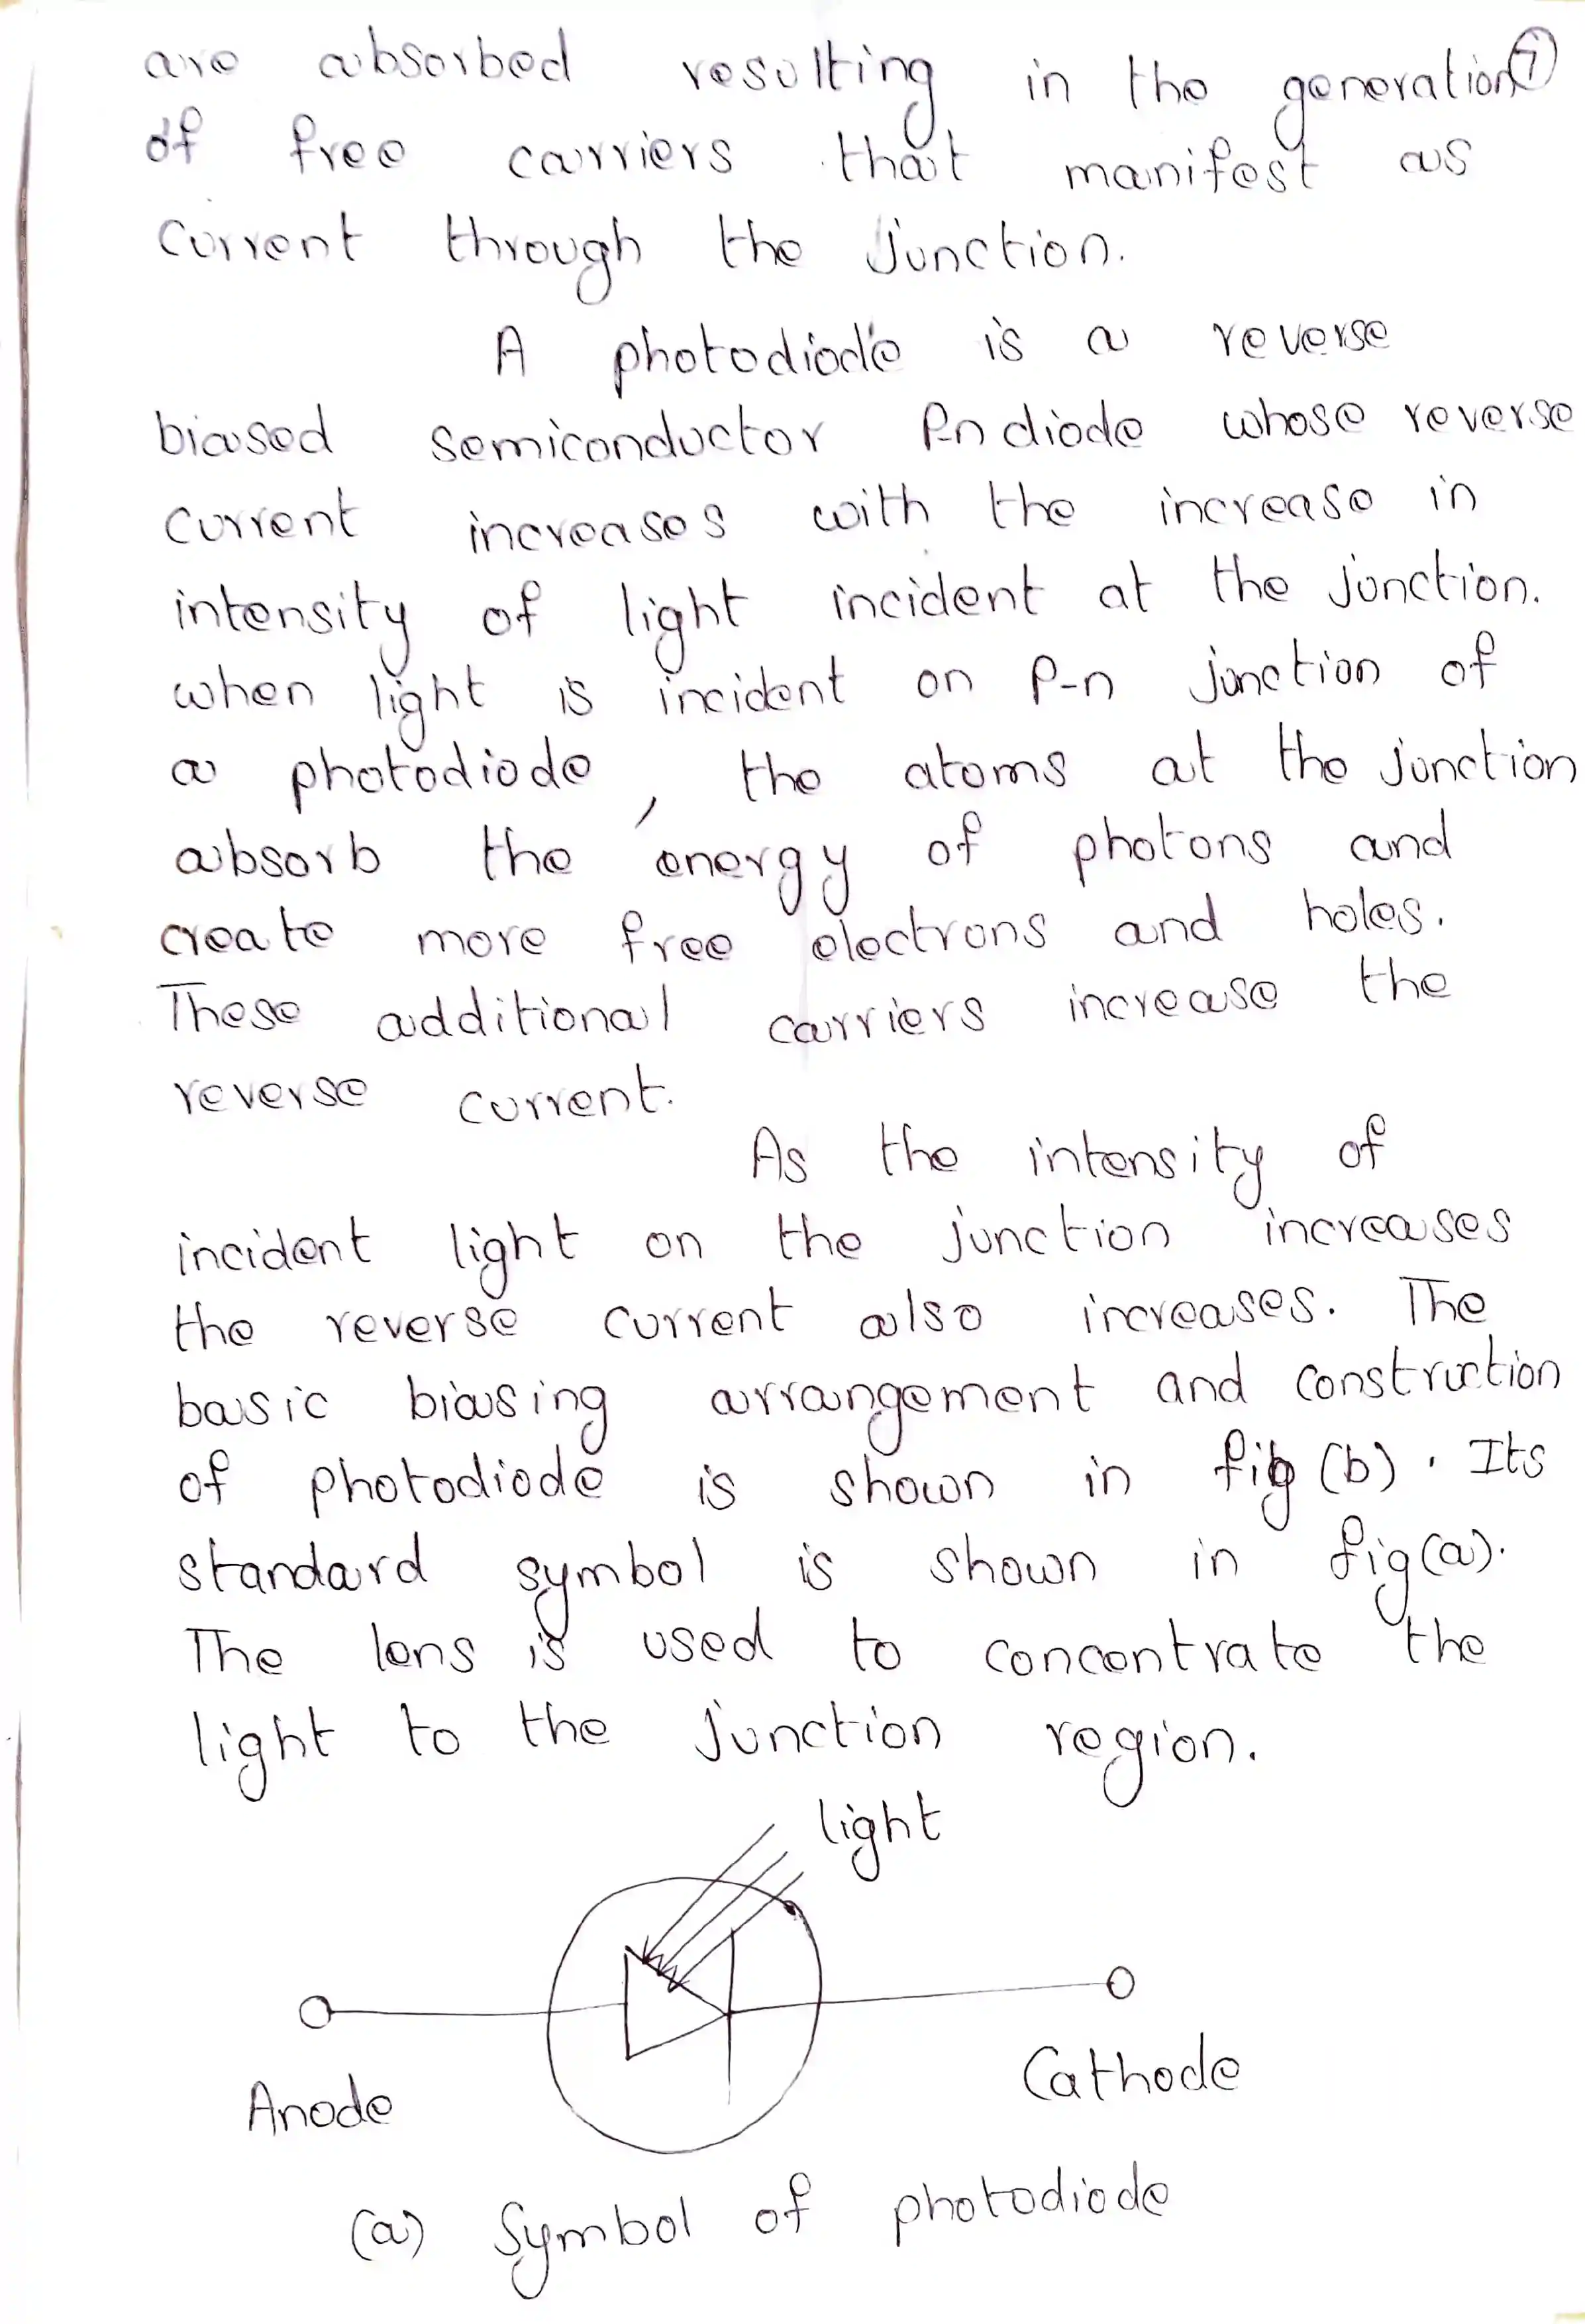 are absorbed resulting in the generation 7
of free carriers that manifest as
current through the junction.
A photodiode is a reverse
biased semiconductor Pn diode whose reverse
current increases with the increase in
intensity of light incident at the junction.
when light is incident on P-n junction of
a photodiode, the atoms at the junction
absorb the energy of photons and
create more free electrons and holes.
These additional carriers increase the
reverse current.
As the intensity of
incident light on the junction increases
the reverse current also increases. The
basic biasing arrangement and construction
of photodiode is shown in fig (b). Its
standard symbol is shown in fig(a).
The lens is used to concentrate the
light to the junction region.
light
Anode
Cathode
(a) Symbol of photodiode